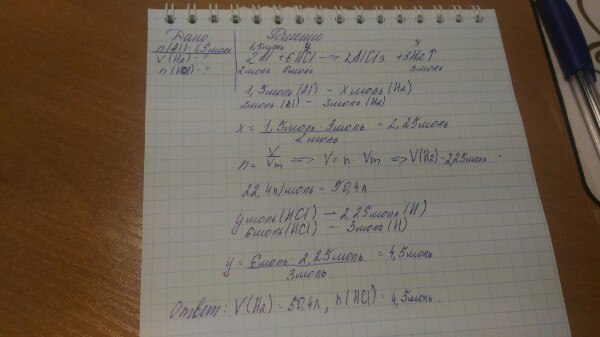 Дано
Решение
n(Al) - 1,5 моль
V(H2) - ?
n(HCl) - ?
1,5 моль y x
2Al + 6HCl → 2AlCl3 + 3H2↑
2 моль 6 моль 3 моль
1,5 моль (Al) - x моль (H2)
2 моль (Al) - 3 моль (H2)
x = 1,5 моль · 3 моль / 2 моль = 2,25 моль
n = V/Vm => V = n · Vm => V(H2) = 2,25 моль ·
22,4 л/моль = 50,4 л
y моль (HCl) - 2,25 моль (H)
6 моль (HCl) - 3 моль (H)
y = 6 моль · 2,25 моль / 3 моль = 4,5 моль
Ответ: V(H2) = 50,4 л, n(HCl) = 4,5 моль.